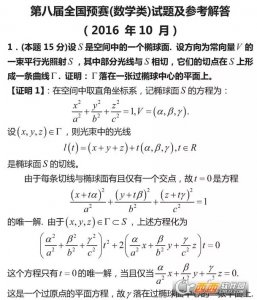 第八届全国预赛(数学类)试题及参考解答
( 2016 年 10 月 )
1. (本题 15 分)设 S 是空间中的一个椭球面. 设方向为常向量 V 的
一束平行光照射 S , 其中部分光线与 S 相切, 它们的切点在 S 上形
成一条曲线 Γ. 证明: Γ 落在一张过椭球中心的平面上.
【证明1】: 在空间中取直角坐标系, 记椭球面 S 的方程为:
x²/a² + y²/b² + z²/c² = 1, V = (α, β, γ).
设 (x, y, z) ∈ Γ , 则光束中的光线
l(t) = (x + y + z) + t(α, β, γ), t ∈ R
是椭球面 S 的切线.
由于每条切线与椭球面有且仅有一个交点, 故 t = 0 是方程
(x + tα)²/a² + (y + tβ)²/b² + (z + tγ)²/c² = 1
的唯一解. 由于 (x, y, z) ∈ Γ ⊂ S , 上述方程化为
(α²/a² + β²/b² + γ²/c²) t² + 2(α/a² x + β/b² y + γ/c² z) t = 0
这个方程只有 t = 0 的唯一解, 当且仅当 α/a² x + β/b² y + γ/c² z = 0.